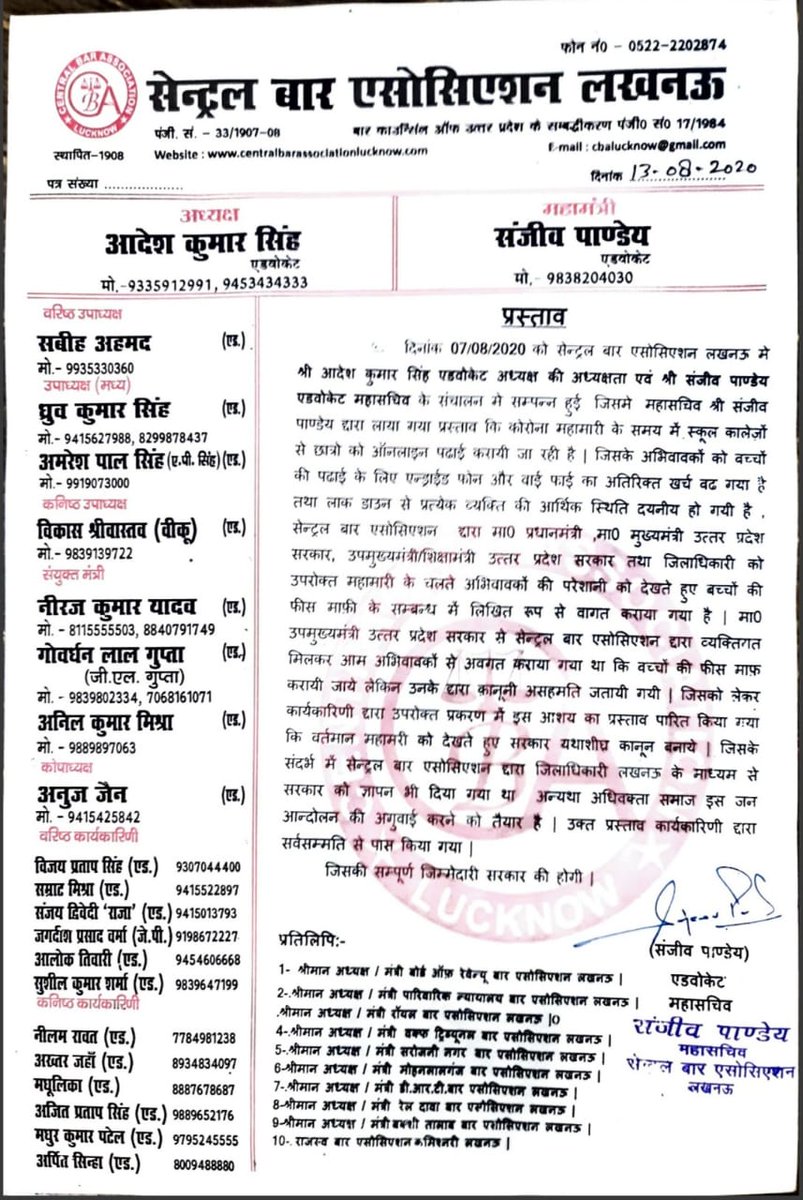 फोन नं0 - 0522-2202874
CENTRAL BAR ASSOCIATION
LUCKNOW
CBA
सेन्ट्रल बार एसोसिएशन लखनऊ
पंजी. सं. - 33/1907-08
बार काउन्सिल ऑफ उत्तर प्रदेश के सम्बद्धीकरण पंजी0 सं0 17/1984
स्थापित-1908
Website : www.centralbarassociationlucknow.com
E-mail : cbalucknow@gmail.com
पत्र संख्या ...................
दिनांक 13-08-2020
अध्यक्ष
आदेश कुमार सिंह
एडवोकेट
मो.-9335912991, 9453434333
महामंत्री
संजीव पाण्डेय
एडवोकेट
मो.- 9838204030
वरिष्ठ उपाध्यक्ष
सबीह अहमद (एड.)
मो.- 9935330360
उपाध्यक्ष (मध्य)
ध्रुव कुमार सिंह (एड.)
मो.- 9415627988, 8299878437
अमरेश पाल सिंह(ए.पी. सिंह)(एड.)
मो.- 9919073000
कनिष्ठ उपाध्यक्ष
विकास श्रीवास्तव (वीकू) (एड.)
मो.- 9839139722
संयुक्त मंत्री
नीरज कुमार यादव (एड.)
मो. - 8115555503, 8840791749
गोवर्धन लाल गुप्ता (एड.)
(जी.एल. गुप्ता)
मो.- 9839802334, 7068161071
अनिल कुमार मिश्रा (एड.)
मो. - 9889897063
कोपाध्यक्ष
अनुज जैन (एड.)
मो.- 9415425842
वरिष्ठ कार्यकारिणी
विजय प्रताप सिंह (एड.) 9307044400
सम्राट मिश्रा (एड.) 9415522897
संजय द्विवेदी 'राजा' (एड.) 9415013793
जगदीश प्रसाद वर्मा (जे.पी.) 9198672227
आलोक तिवारी (एड.) 9454606668
सुशील कुमार शर्मा (एड.) 9839647199
कनिष्ठ कार्यकारिणी
नीलम रावत (एड.) 7784981238
अख्तर जहाँ (एड.) 8934834097
मधूलिका (एड.) 8887678687
अजित प्रताप सिंह (एड.) 9889652176
मधुर कुमार पटेल (एड.) 9795245555
अर्पित सिन्हा (एड.) 8009488880
प्रस्ताव
दिनांक 07/08/2020 को सेन्ट्रल बार एसोसिएशन लखनऊ मे
श्री आदेश कुमार सिंह एडवोकेट अध्यक्ष की अध्यक्षता एवं श्री संजीव पाण्डेय
एडवोकेट महासचिव के संचालन मे सम्पन्न हुई जिसमे महासचिव श्री संजीव
पाण्डेय द्वारा लाया गया प्रस्ताव कि कोरोना महामारी के समय में स्कूल कालेज़ों
से छात्रो को ऑनलाइन पढाई करायी जा रही है | जिसके अभिवावकों को बच्चों
की पढाई के लिए एन्ड्राईड फोन और वाई फाई का अतिरिक्त खर्च बढ गया है
तथा लाक डाउन से प्रत्येक व्यक्ति की आर्थिक स्थिति दयनीय हो गयी है .
सेन्ट्रल बार एसोसिएशन द्वारा मा0 प्रधानमंत्री ,मा0 मुख्यमंत्री उत्तर प्रदेश
सरकार, उपमुख्यमंत्री/शिक्षामंत्री उत्तर प्रदेश सरकार तथा जिलाधिकारी को
उपरोक्त महामारी के चलते अभिवावकों की परेशानी को देखते हुए बच्चों की
फीस माफ़ी के सम्बन्ध में लिखित रूप से वागत कराया गया है | मा0
उपमुख्यमंत्री उत्तर प्रदेश सरकार से सेन्ट्रल बार एसोसिएशन द्वारा व्यक्तिगत
मिलकर आम अभिवावकों से अवगत कराया गया था कि बच्चों की फीस माफ़
करायी जाये लेकिन उनके द्वारा क़ानूनी असहमति जतायी गयी | जिसको लेकर
कार्यकारिणी द्वारा उपरोक्त प्रकरण में इस आशय का प्रस्ताव पारित किया गया
कि वर्तमान महामरी को देखते हुए सरकार यथाशीघ्र कानून बनाये | जिसके
संदर्भ में सेन्ट्रल बार एसोसिएशन द्वारा जिलाधिकारी लखनऊ के माध्यम से
सरकार को ज्ञापन भी दिया गया था अन्यथा अधिवक्ता समाज इस जन
आन्दोलन की अगुवाई करने को तैयार है | उक्त प्रस्ताव कार्यकारिणी द्वारा
सर्वसम्मति से पास किया गया |
जिसकी सम्पूर्ण जिम्मेदारी सरकार की होगी |
LUCKNOW
(संजीव पाण्डेय)
एडवोकेट
महासचिव
संजीव पाण्डेय
महासचिव
सेन्ट्रल बार एसोसिएशन
लखनऊ
प्रतिलिपि:-
1- श्रीमान अध्यक्ष / मंत्री बोर्ड ऑफ़ रेवेन्यू बार एसोसिएशन लखनऊ |
2-.श्रीमान अध्यक्ष / मंत्री पारिवारिक न्यायालय बार एसोसिएशन लखनऊ |
.श्रीमान अध्यक्ष / मंत्री रॉयल बार एसोसिएशन लखनऊ |0
4-.श्रीमान अध्यक्ष / मंत्री वक्फ ट्रिम्यूनल बार एसोसिएशन लखनऊ |
5-.श्रीमान अध्यक्ष / मंत्री सरोजनी नगर बार एसोसिएशन लखनऊ |
6-श्रीमान अध्यक्ष / मंत्री मोहनलालगंज बार एसोसिएशन लखनऊ |
7-.श्रीमान अध्यक्ष / मंत्री डी.आर.टी.बार एसोसिएशन लखनऊ |
8-श्रीमान अध्यक्ष / मंत्री रेल दावा बार एसोसिएशन लखनऊ |
9-श्रीमान अध्यक्ष / मंत्री बक्शी तालाब बार एसोसिएशन लखनऊ |
10-. राजस्व बार एसोसिएशन कमिश्नरी लखनऊ |